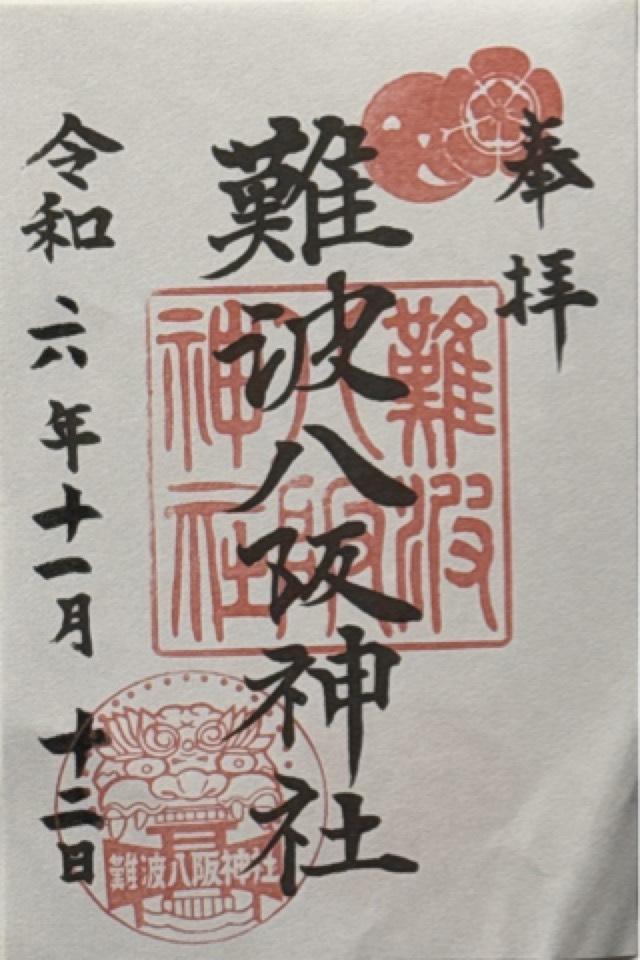 奉拝
難波八阪神社
令和六年十一月十二日
難波八阪神社
難波八阪神社